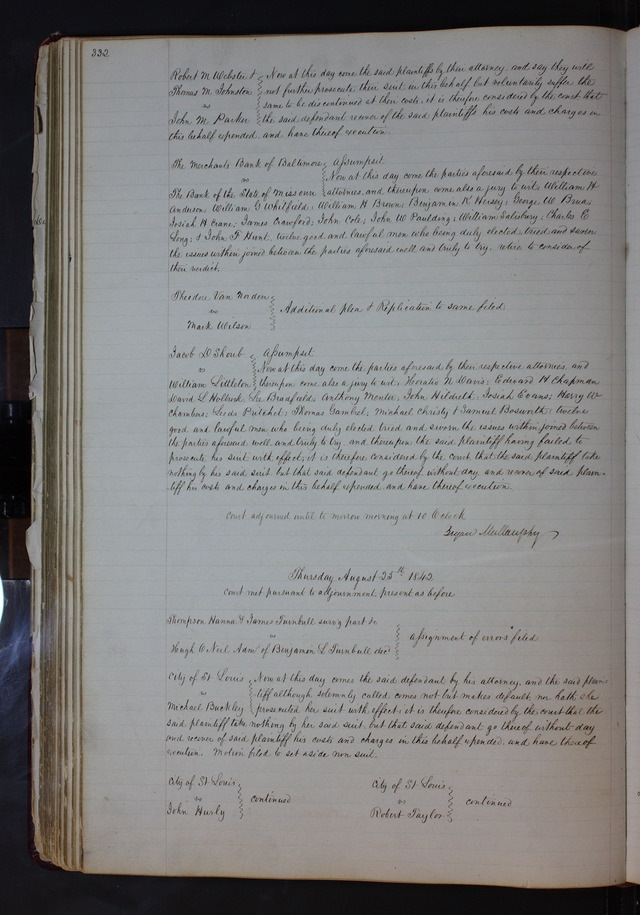 332
Robert M Webster & Now at this day come the said plaintiffs by their attorney, and say they will
Thomas M Johnston not further prosecute their suit in this behalf but voluntarily suffer the
vs same to be discontinued at their costs, it is therefore considered by the court that
John M Parker the said defendant recover of the said plaintiffs his costs and charges in
this behalf expended, and have thereof execution.
The Merchants Bank of Baltimore Assumpsit
vs Now at this day come the parties aforesaid by their respective
The Bank of the State of Missouri attornies, and thereupon come also a jury to wit, William H
Anderson William G Whitfield; William H Brown; Benjamin K Hersey; George W
Josiah H Crane; James Crawford; John Cole; John W Paulding; William Salisbury; Charles C
Long; & John F Hunt, twelve good and lawful men who being duly elected tried and sworn
the issues within joined between the parties aforesaid well and truly to try, retire to consider of
their verdict.
Theodore Van Norden
vs Additional plea & Replication to same filed
Mark Wilson
Jacob D Shoub Assumpsit
vs Now at this day come the parties aforesaid by their respective attornies, and
William Littleton thereupon come also a jury to wit. Horatio N Davis; Edward H Chapman
David L Holbrook, Lee Bradfield; Anthony; John Hildreth; Josiah Evans; Harry W
Chambers; Leeds Pritchet; Thomas Gambel; Michael Christy & Samuel Bosworth; twelve
good and lawful men who being duly elected tried and sworn the issues within joined between
the parties aforesaid well and truly to try, and thereupon the said plaintiff having failed to
prosecute his suit with effect; it is therefore considered by the Court that the said plaintiff take
nothing by his said suit but that said defendant go thereof without day and recover of said plain-
tiff his costs and charges in this behalf expended, and have thereof execution.
Court adjourned until to morrow morning at 10 O'clock
Bryan Mullanphy
Thursday August 25th 1842
Court met pursuant to adjournment present as before
Thompson Hanna & James Turnbull surv'g part &c
vs Assignment of errors filed
Hugh O Neil Adm' of Benjamin L Turnbull dec'd
City of St Louis Now at this day comes the said defendant by his attorney, and the said plain-
vs tiff although solemnly called comes not but makes default, nor hath she
Michael Buckley prosecuted her suit with effect; it is therefore considered by the court that the
said plaintiff take nothing by her said suit, but that said defendant go thereof without day
and recover of said plaintiff his costs and charges in this behalf expended, and have thereof
execution. Motion filed to set aside non suit.
City of St Louis City of St Louis
vs continued vs continued
John Hurly Robert Taylor